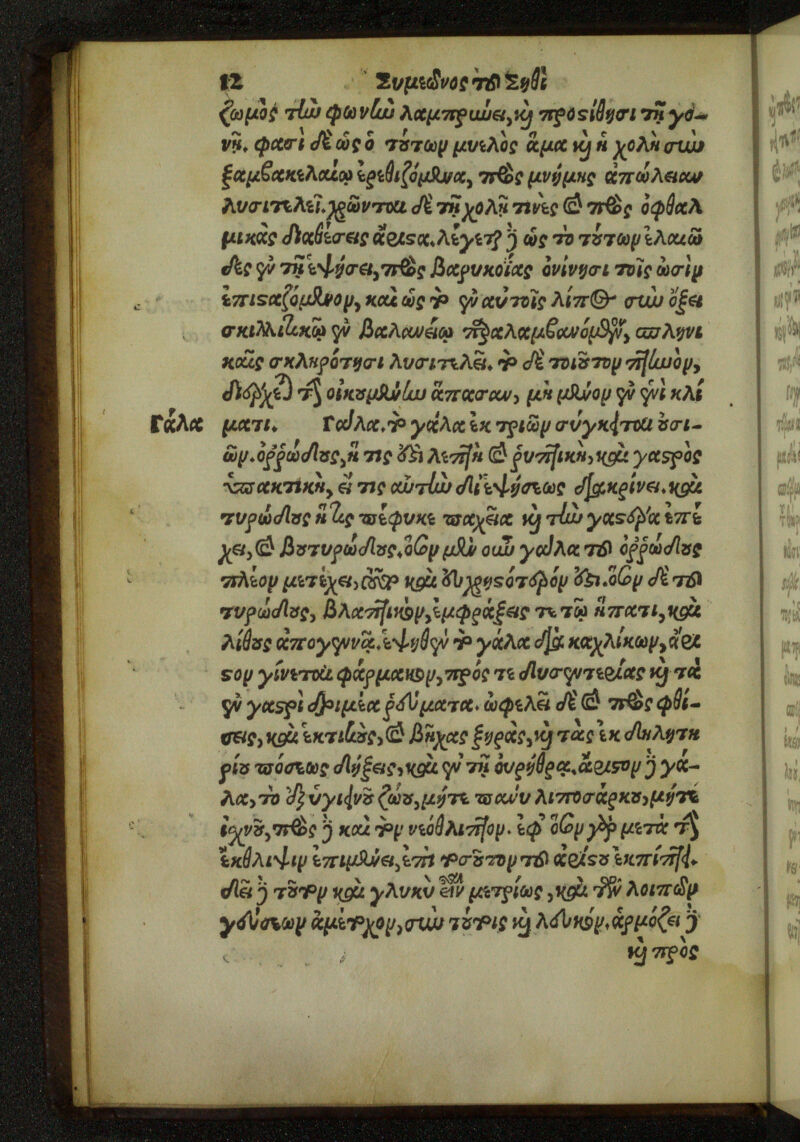 12 Συμεῶνος τοῦ Σηθὶ
ζωμὸς τὴν φωνὴν λαμπρύνει, καὶ προστίθησι τῇ γο-
νῇ. φασὶ δὲ ὡς ὁ τούτων μυελὸς ἅμα καὶ ἡ χολὴ σὺν
ξαμβακελαίῳ ἐρεθιζόμενα, πρὸς μνήμης ἀπώλειαν
λυσιτελεῖ. χρῶνται δὲ τῇ χολῇ τινὲς καὶ πρὸς ὀφθαλ
μικὰς διαθέσεις ἄριστα. λέγεται δὲ ὡς τὸ τούτων ἐλαίῳ
ἐν τῇ ἑψήσει, πρὸς βαρυκοΐας ὀνίνησι τοῖς ὠσὶν
ἐπισταζόμενον, καὶ ὡς τὸ ἐν αὐτοῖς λίπος σὺν ὄξει
σκιλλιτικῷ ἐν βαλανείῳ παραλαμβανόμενον, σπληνὶ
καὶ σκληρότησι λυσιτελεῖ. τὸ δὲ τοιοῦτον πτηνὸν,
διέρχεται τὴν οἰκουμένην ἅπασαν, μὴ μένον ἐν ἑνὶ κλί
Γάλα ματι. Γάλα. τὸ γάλα ἐκ τριῶν σύγκειται οὐσι-
ῶν. ὀρρώδους, ἥ τις ἐστὶ λεπτὴ καὶ ῥυπτικὴ, καὶ γαστρὸς
ὑπακτικὴ, εἴ τις αὐτὴν δι' ἑψήσεως διακρίνει. καὶ
τυρώδους ἥτις πέφυκε παχεῖα καὶ τὴν γαστέρα ἐπέ
χει, καὶ βουτυρώδους. ὅθεν μὲν οὖν γάλα τοῦ ὀρρώδους
πλέον μετέχει, καὶ εὐχρηστότερόν ἐστι. ὅθεν δὲ τοῦ
τυρώδους, βλαπτικὸν, ἐμφράξεις τε τῷ ἥπατι, καὶ
λίθους ἀπογεννᾷ. ἑψηθὲν τὸ γάλα διὰ καχλίκων, ἄρι
στον γίνεται φάρμακον, πρός τε δυσεντερίας καὶ τὰ
ἐν γαστρὶ δριμέα ῥεύματα. ὠφελεῖ δὲ καὶ πρὸς φθί-
σεις, καὶ ἑκτικοὺς, καὶ βῆχας ξηρὰς, καὶ τὰς ἐκ δηλητη
ρίου πόσεως δήξεις, καὶ ἐν τῇ οὐρήθρᾳ. ἄριστον δὲ γά-
λα, τὸ ἐξ ὑγιεινοῦ ζώου, μήτε πάνυ λιποσάρκου, μήτε
ἰσχνοῦ, πρὸς δὲ καὶ τὸν νεόθλιπτον. ἐφ' ὅσον γὰρ μετὰ τὴν
ἔκθλιψιν ἐπιμένει, ἐπὶ τοσοῦτον τοῦ ἀρίστου ἐκπίπτει.
δεῖ δὲ τοῦτον καὶ γλυκὺ εἶναι μετρίως, καὶ τῶν λοιπῶν
γεύσεων ἀμέτοχον, σὺν τούτοις καὶ λευκὸν. ἁρμόζει δὲ
καὶ πρὸς